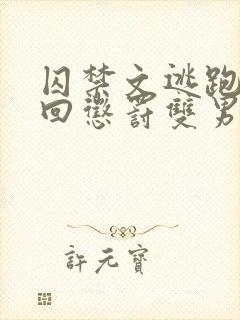 囚禁文逃跑
回懲罰雙男
許元寶